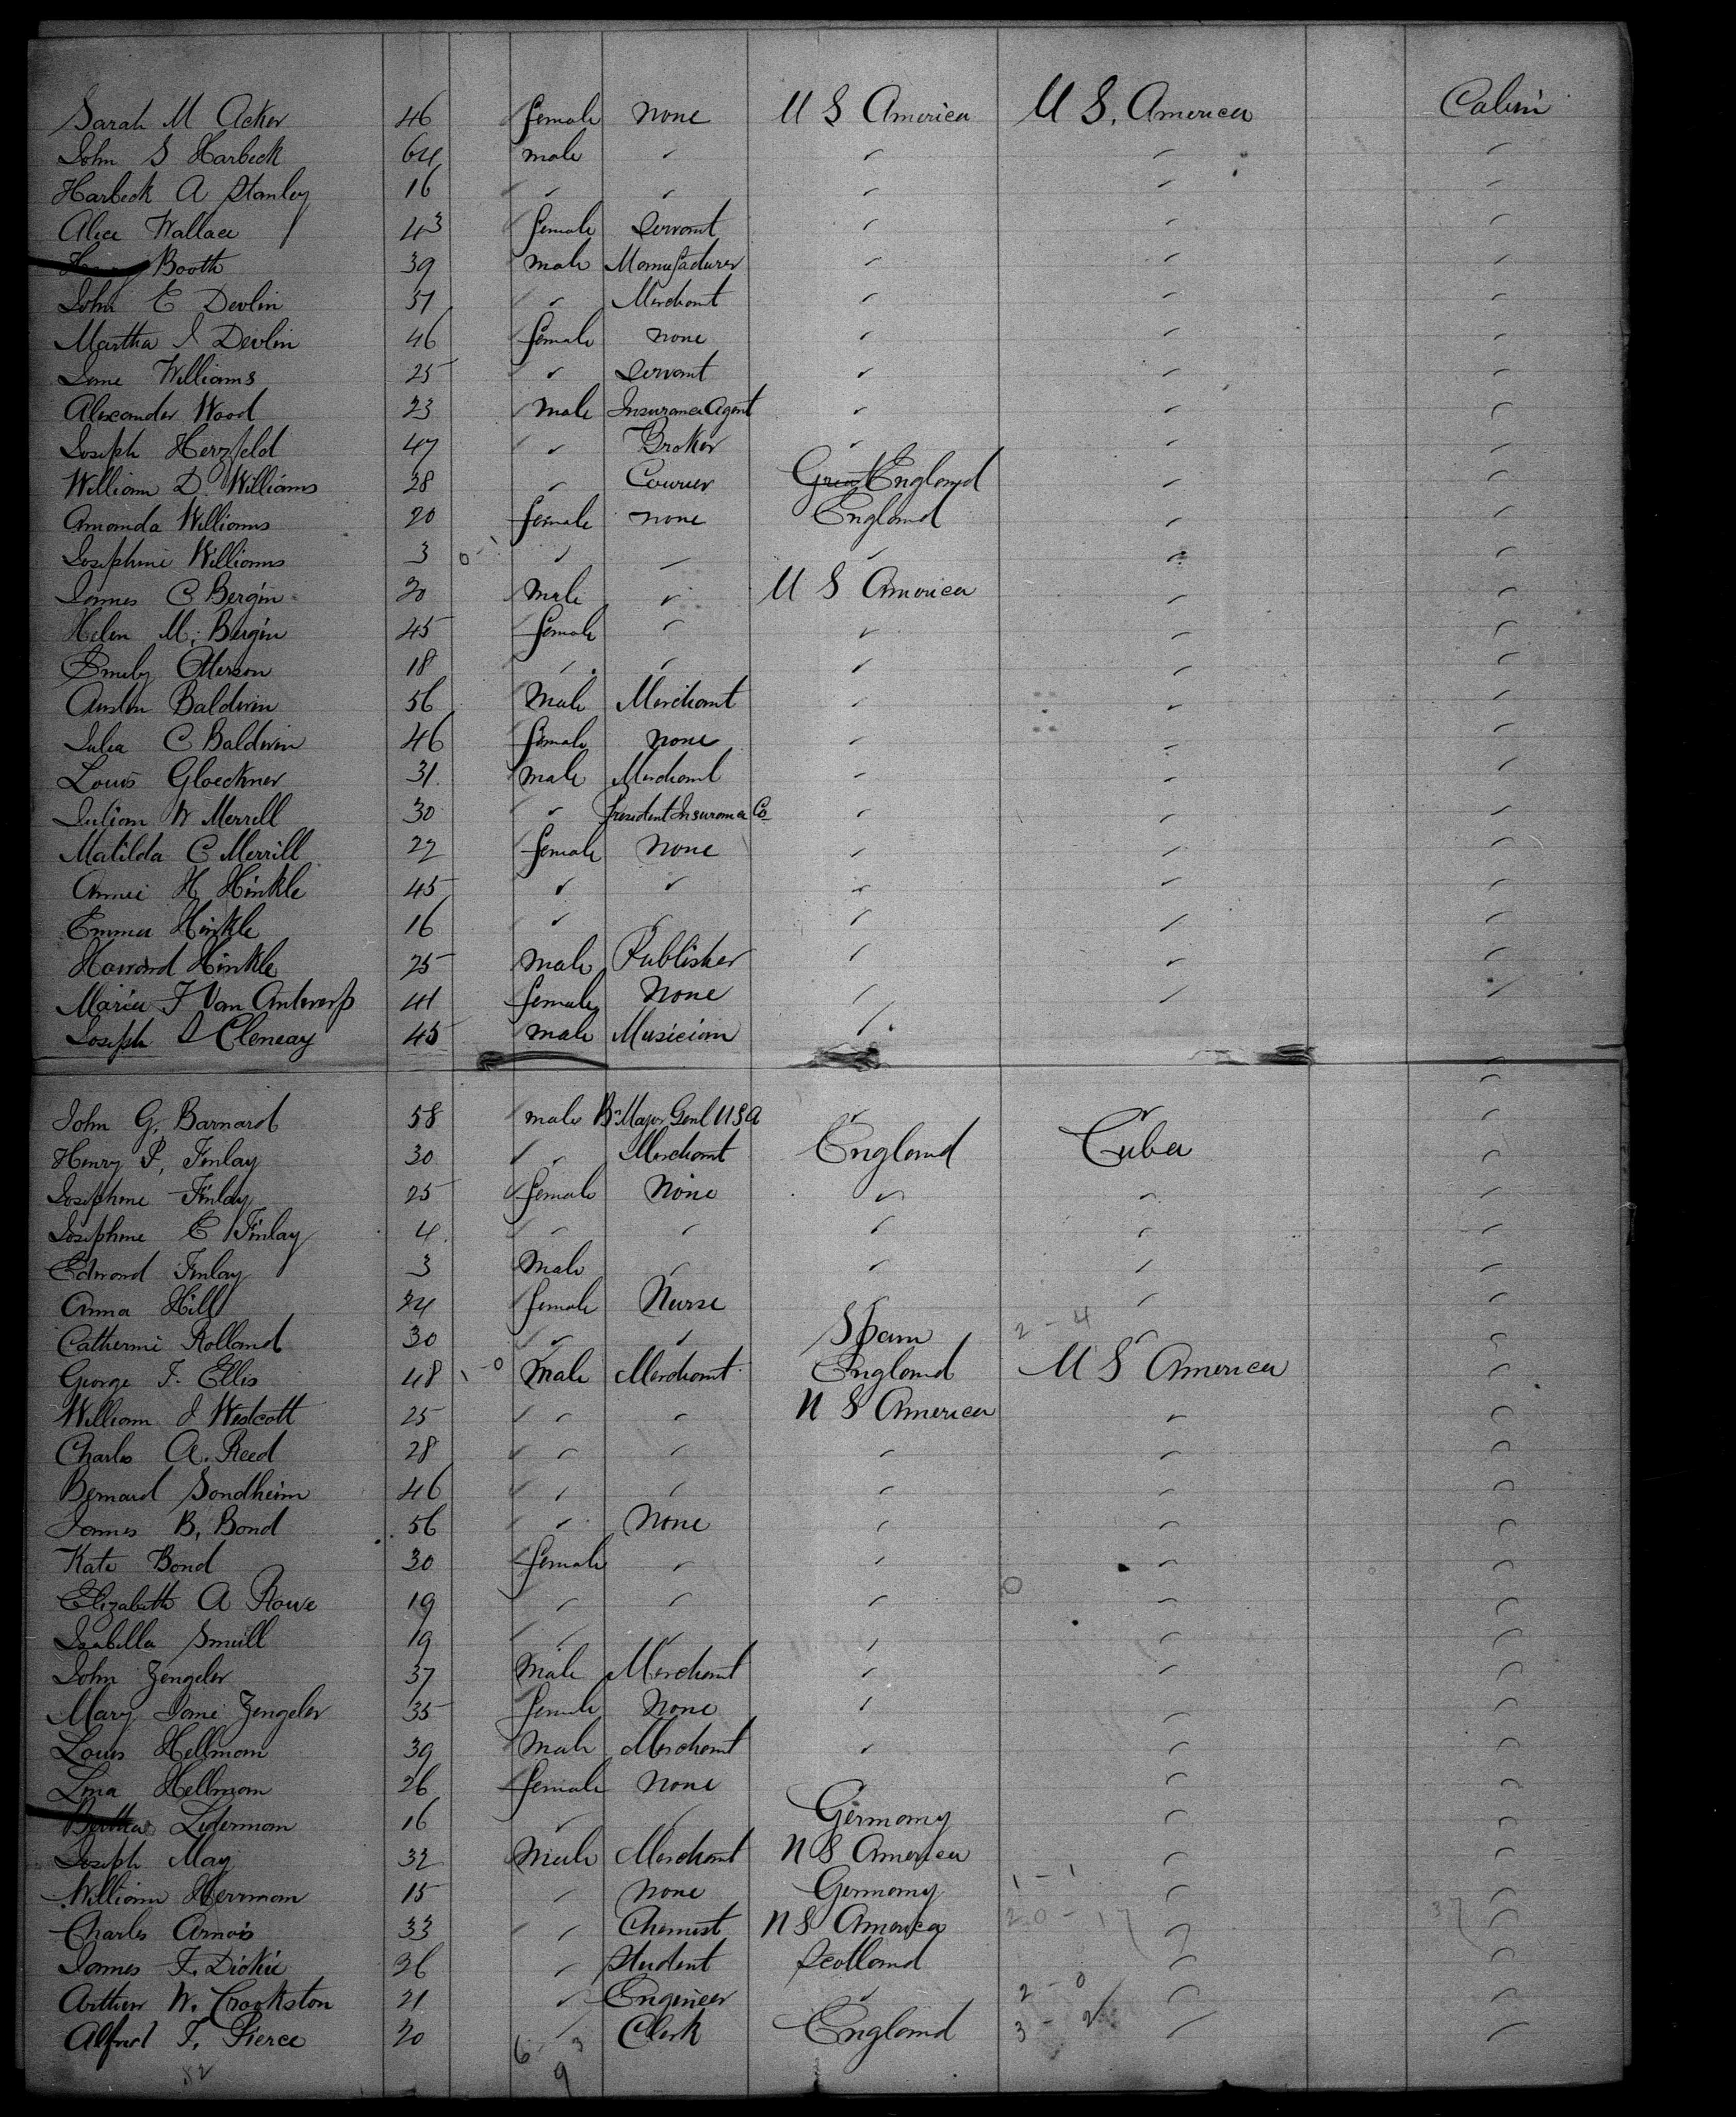 Sarah M Acker 46 female none U S America U S. America Cabin
John S Harbeck 64 male " " " "
Harbeck A Stanley 16 " " " " "
Alice Wallace 43 female Servant " " "
Henry Booth 39 male Manufacturer " " "
John E Devlin 51 " Merchant " " "
Martha J Devlin 46 female none " " "
Jane Williams 25 " Servant " " "
Alexander Wood 23 male Insurance Agent " " "
Joseph Herzfeld 47 " Broker " " "
William D. Williams 38 " Courier England " "
Amanda Williams 20 female none England " "
Josephine Williams 3 0-1 " " " " "
James C Bergin 20 male " U S America " "
Helen M. Bergin 45 female " " " "
Emily Otterson 18 " " " " "
Austin Baldwin 56 male Merchant " " "
Julia C Baldwin 46 female none " " "
Louis Gloeckner 31 male Merchant " " "
Julian W Merrell 30 " President Insurance Co " " "
Matilda C Merrill 22 female none " " "
Annie H Hinkle 45 " " " " "
Emma Hinkle 16 " " " " "
Howard Hinkle 25 male Publisher " " "
Maria T Van Antwerp 41 female none " " "
Joseph L Cleneay 45 male Musician " "
John G. Barnard 58 male Bt Major Genl U S A " " "
Henry P. Finlay 30 " Merchant England Cuba "
Josephine Finlay 25 female none " " "
Josephine E Finlay 4 " " " " "
Edmond Finlay 3 male " " " "
Anna Hill 24 female Nurse " " "
Catherine Rolland 30 " " Spain 2-4 " "
George F. Ellis 48 1-0 male Merchant England U S America "
William J Westcott 25 " " U S America " "
Charles A. Reed 28 " " " " "
Bernard Sondheim 46 " " " " "
James B. Bond 56 " none " " "
Kate Bond 30 female " " " "
Elizabeth A Rowe 19 " " " " "
Isabella Smull 19 " " " " "
John Zengeler 37 male Merchant " " "
Mary Jane Zengeler 35 female none " " "
Louis Hellman 39 male Merchant " " "
Lina Hellman 26 female none " " "
Bertha Liderman 16 " " Germany " "
Joseph May 32 male Merchant U S America " "
William Herrman 15 " none Germany 1-1 " "
Charles Arnois 33 " Chemist U S America 20-17 " 37 "
James F. Dickie 26 " Student Scotland " "
Arthur W. Crookston 21 " Engineer " 2-0 " "
Alfred T. Pierce 20 " Clerk England 3-2 " "
82 6 3
9